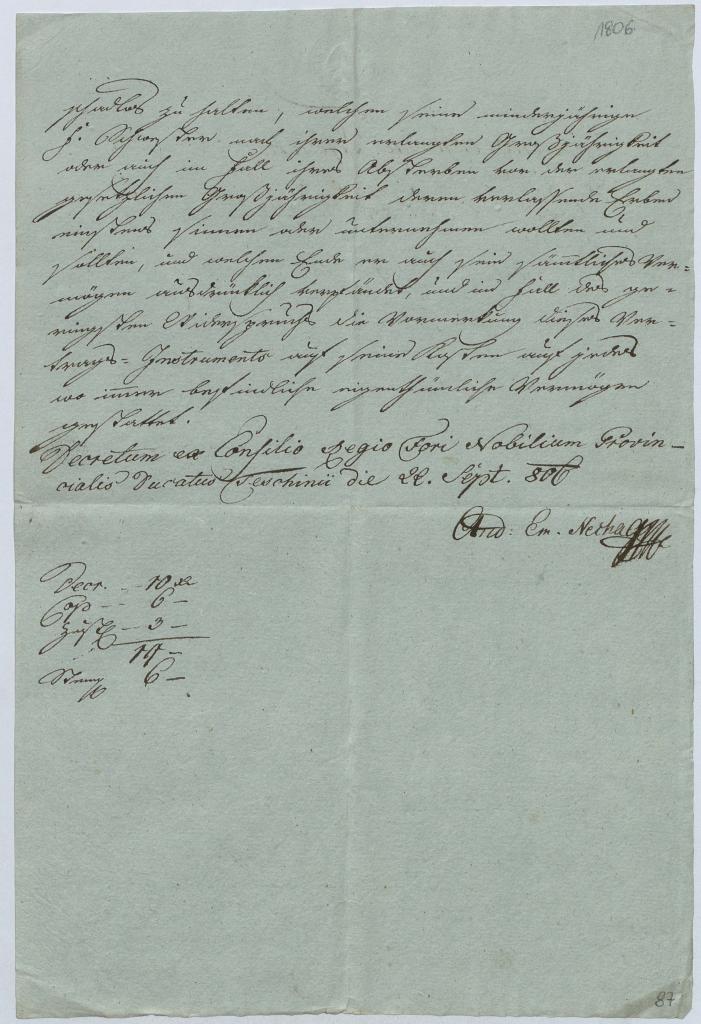 1806
schadlos zu halten, welchen seine minderjährige
H: Schwester nach ihrer erlangten Großjährigkeit
oder auch im Fall ihres Absterben vor der erlangten
gesetzlichen Großjährigkeit deren verlassende Erben
einstens sinnen oder unternehmen wollten und
sollten, und welchen Ende er auch sein sämmtliches Ver=
mögen ausdrücklich verpfändet, und im Fall des ge=
ringsten Widerspruchs die Vormerkung dieses Ver=
trags=Instruments auf seine Kosten auf jedes
wo immer befindliche eigenthümliche Vermögen
gestattet.
Decretum ex Consilio Regio Fori Nobilium Provin-
cialis Ducatus Teschinii die 22. Sept. 806
And: Em.
Decr. - 10 x
Cop - - 6 -
Zust - 3 -
19 -
Stemp 6 -
87